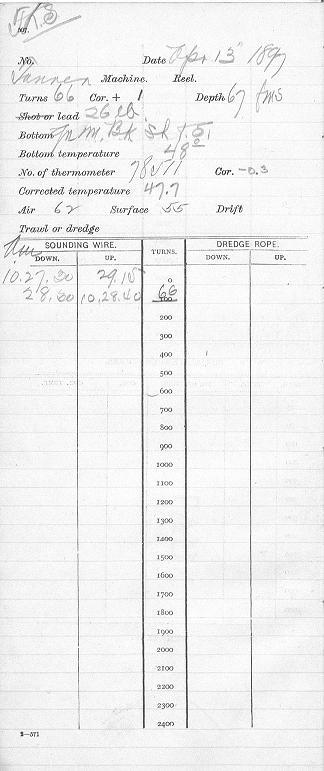 No. Date Apr. 13 189
Tanner Machine. Reel.
Turns 66 Cor. + 1 Depth 67 fms
Shot or lead 26 lb
Bottom M, Bk Sh
Bottom temperature 48°
No. of thermometer 78571 Cor. -0.3
Corrected temperature 47.7
Air 62 Surface 55 Drift
Trawl or dredge
SOUNDING WIRE. TURNS. DREDGE ROPE.
DOWN. UP. DOWN. UP.
10.27.30 29.15 0
28.30 10.28.40 66 100
200
300
400
500
600
700
800
900
1000
1100
1200
1300
1400
1500
1600
1700
1800
1900
2000
2100
2200
2300
2400
2—571